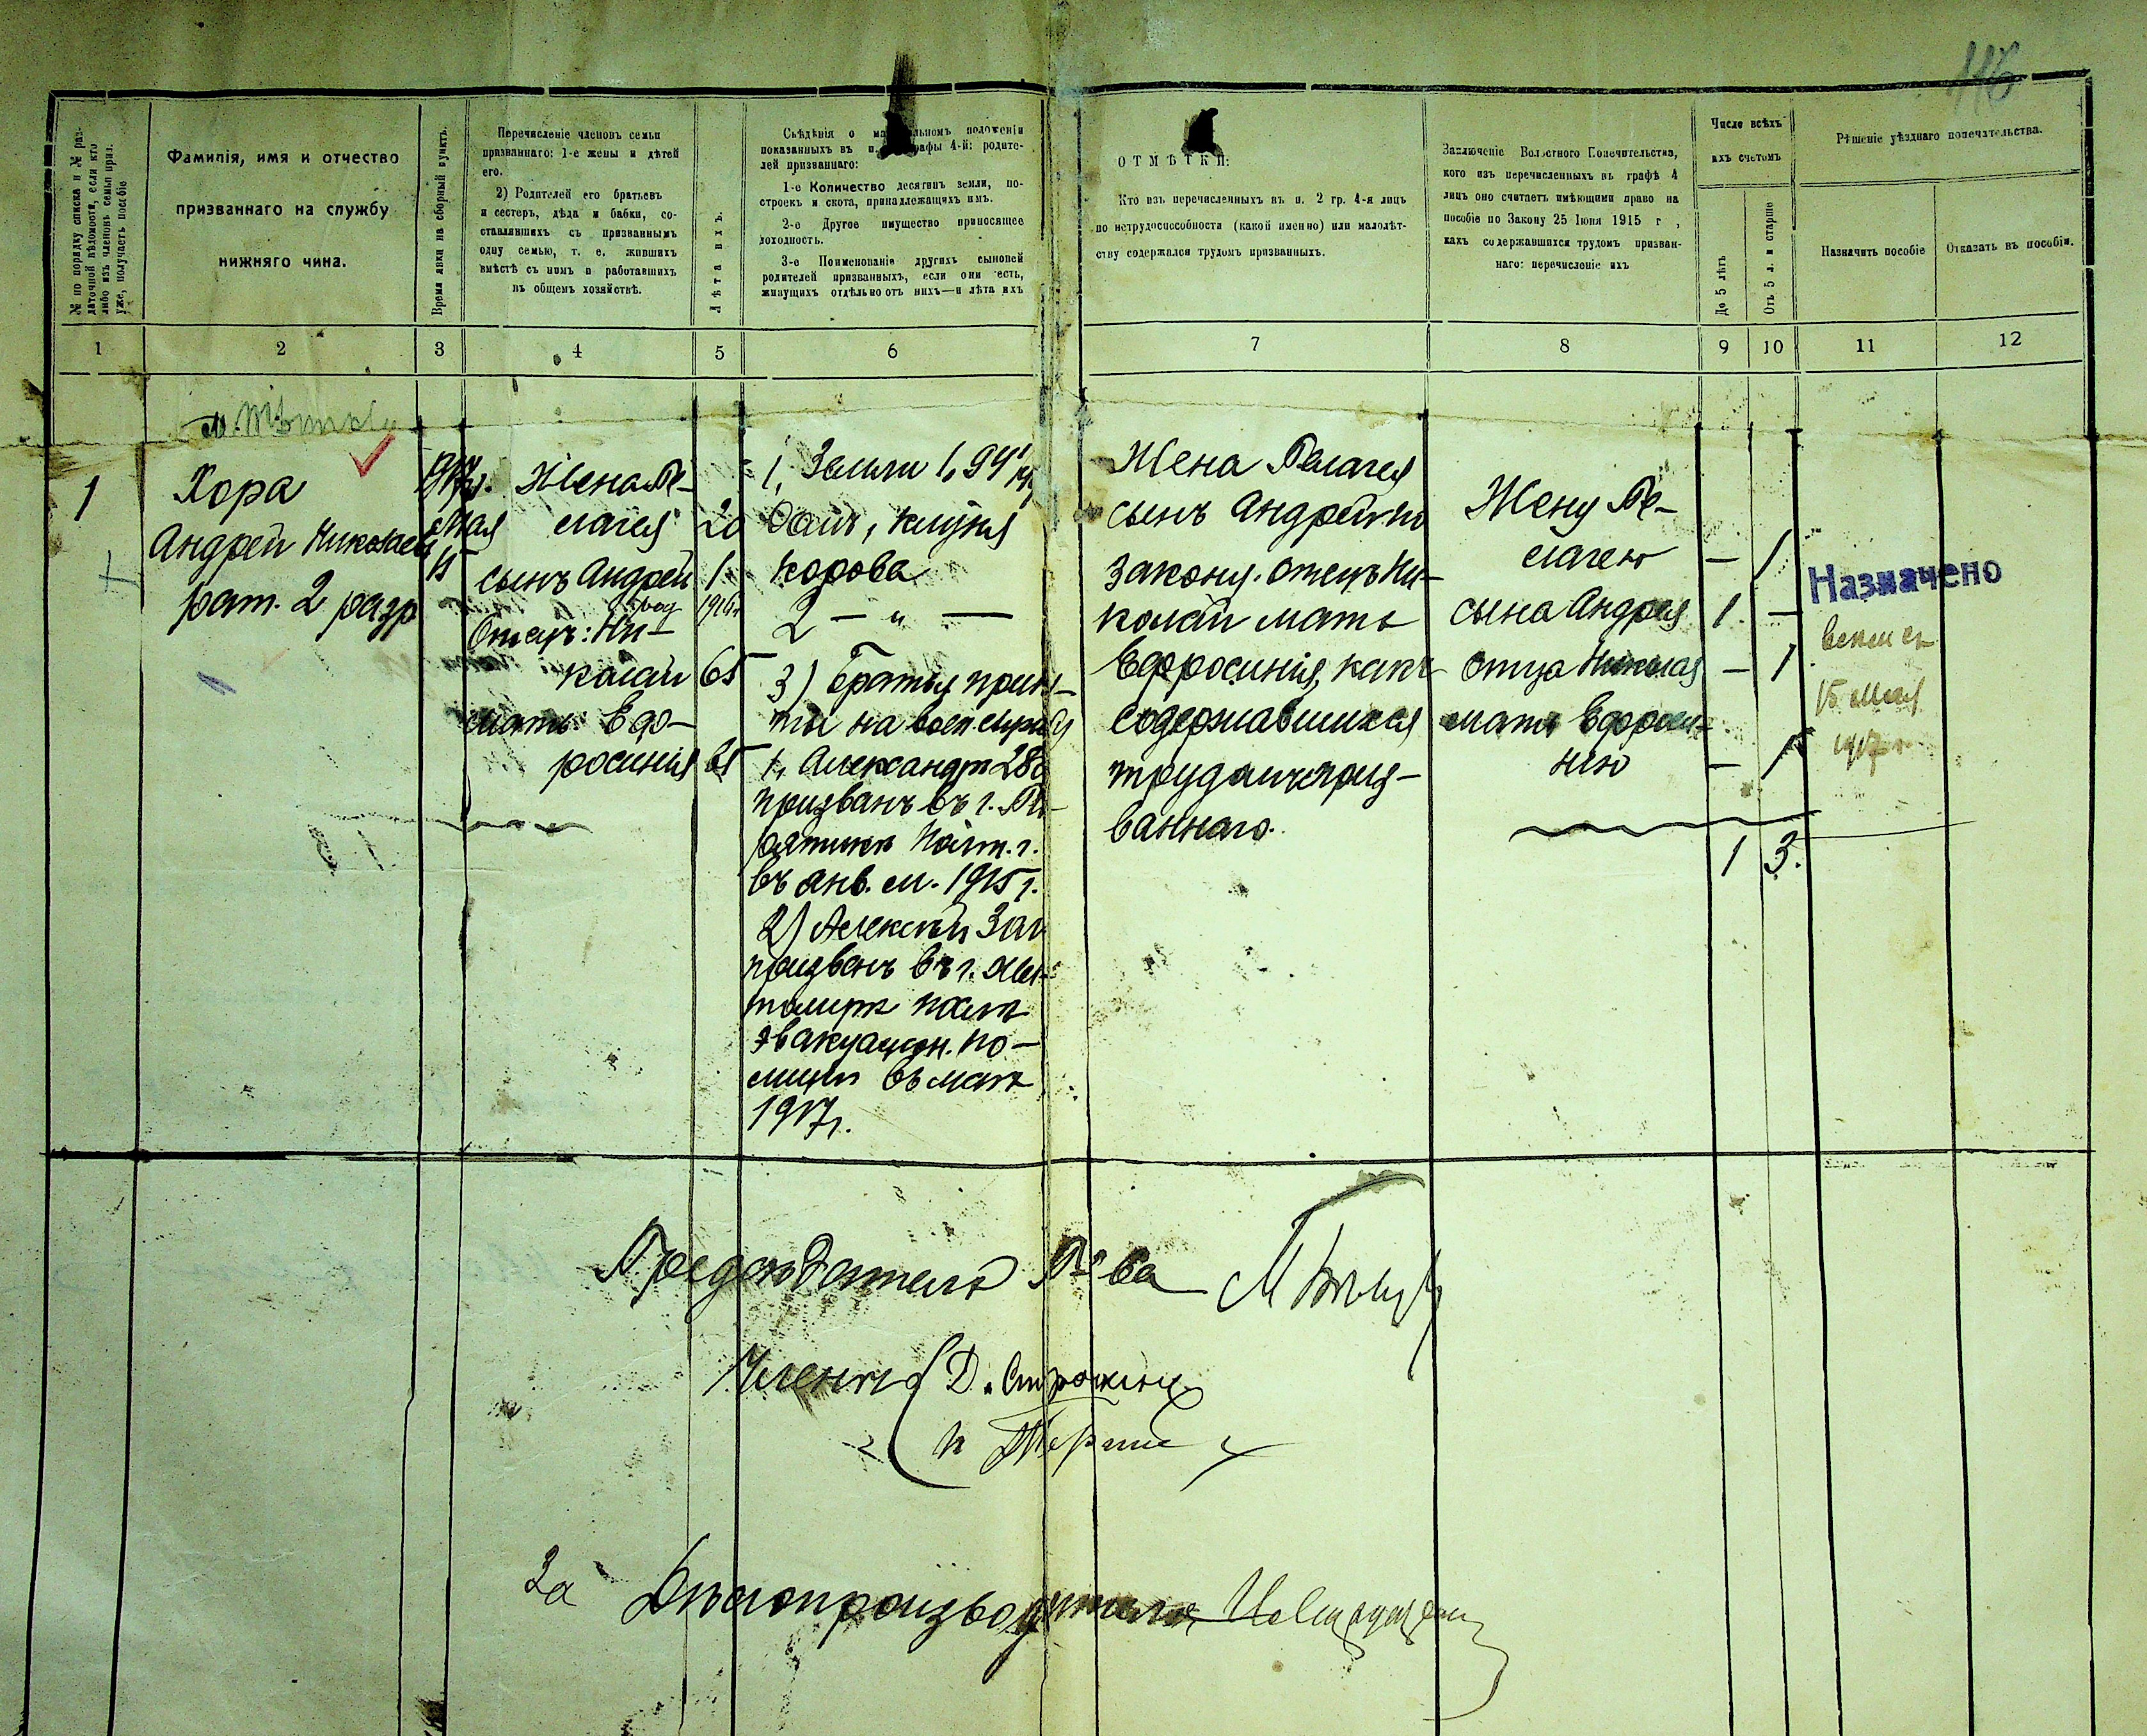 116
№ по порядку списка и № раз-
даточной вѣдомости, если кто
либо изъ членовъ семьи приз.
уже, получаетъ пособіе
Фамилія, имя и отчество
призваннаго на службу
нижняго чина.
Время явки на сборный пунктъ.
Перечисленіе членовъ семьи
призваннаго: 1-е жены и дѣтей
его.
2) Родителей его братьевъ
и сестеръ, дѣда и бабки, со-
ставлявшихъ съ призваннымъ
одну семью, т. е. жившихъ
вмѣстѣ съ нимъ и работавшихъ
въ общемъ хозяйствѣ.
Лѣта ихъ.
Свѣдѣнія о ма льномъ положеніи
показанныхъ въ п. графы 4-й: родите-
лей призваннаго:
1-е Количество десятинъ земли, по-
строекъ и скота, принадлежащихъ имъ.
2-е Другое имущество приносящее
доходность.
3-е Поименованіе другихъ сыновей
родителей призванныхъ, если они есть,
живущихъ отдѣльно отъ нихъ—и лѣта ихъ
ОТМѢТКИ:
Кто изъ перечисленныхъ въ п. 2 гр. 4-я лицъ
по нетрудоспособности (какой именно) или малолѣт-
ству содержался трудомъ призванныхъ.
Заключеніе Волостного Попечительства,
кого изъ перечисленныхъ въ графѣ 4
лицъ оно считаетъ имѣющими право на
пособіе по Закону 25 Іюня 1915 г ,
какъ содержавшихся трудомъ призван-
наго: перечисленіе ихъ
Число всѣхъ
ихъ счетомъ
До 5 лѣтъ
Отъ 5 л. и старше
Рѣшеніе уѣзднаго попечительства.
Назначить пособіе
Отказать въ пособіи.
1 2 3 4 5 6 7 8 9 10 11 12
1
Хора
Андрей Николаев
рат. 2 разр
1917г.
Мая
15
Жена Пе-
лагея 20
сынъ Андрей 1.
род 1916г
Отецъ: Ни-
колай 65
мать: Ефо-
росинія 65
1, Земли 1,94
Домъ, клуня
корова
2 — „ —
3) Братья приня-
ты на воен. службу
1, Александръ 28
призванъ въ г. Пи-
рятинѣ Полт. г.
въ янв. м. 1915 г.
2) Алексѣй
призванъ въ г. Жи-
томирѣ
эвакуацион. ко-
мисіи въ маѣ
1917г.
Жена Пелагея
сынъ Андрей по
закону. отецъ Ни-
колай мать
Ефросинія, какъ
содержавшихся
трудомъ приз-
ваннаго.
Жену Пе-
лагею — 1
сына Андрея 1. —
отца Николая — 1
мать Ефроси-
нію — 1
1 3.
Назначено
15 мая
1917 г
Предсѣдатель П-ва
Члены Д.
За Дѣлопроизводителя